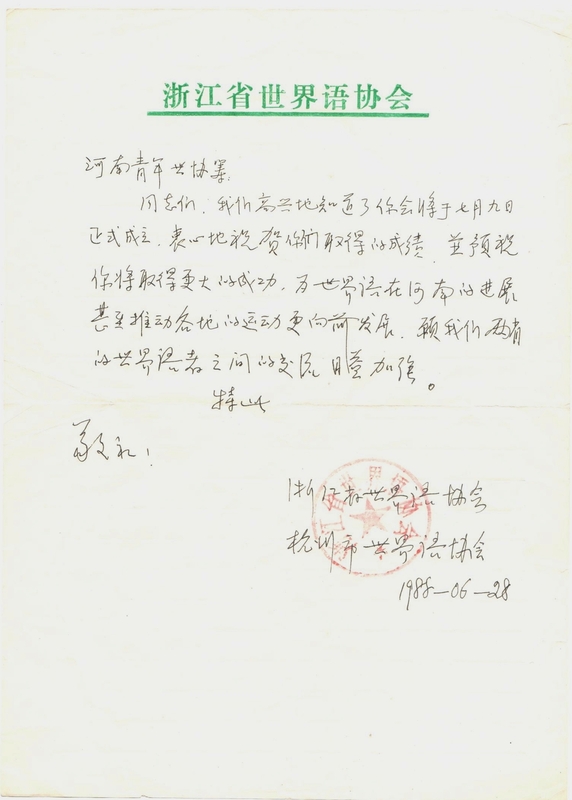 浙江省世界语协会
河南青年世协筹:
同志们，我们高兴地知道了你会将于七月九日
正式成立，衷心地祝贺你们取得的成绩，并预祝
你将取得更大的成功，为世界语在河南的进展
甚至推动各地的运动更向前发展，愿我们两省
的世界语者之间的交流日益加强。
特此
敬礼！
浙江省世界语协会
杭州市世界语协会